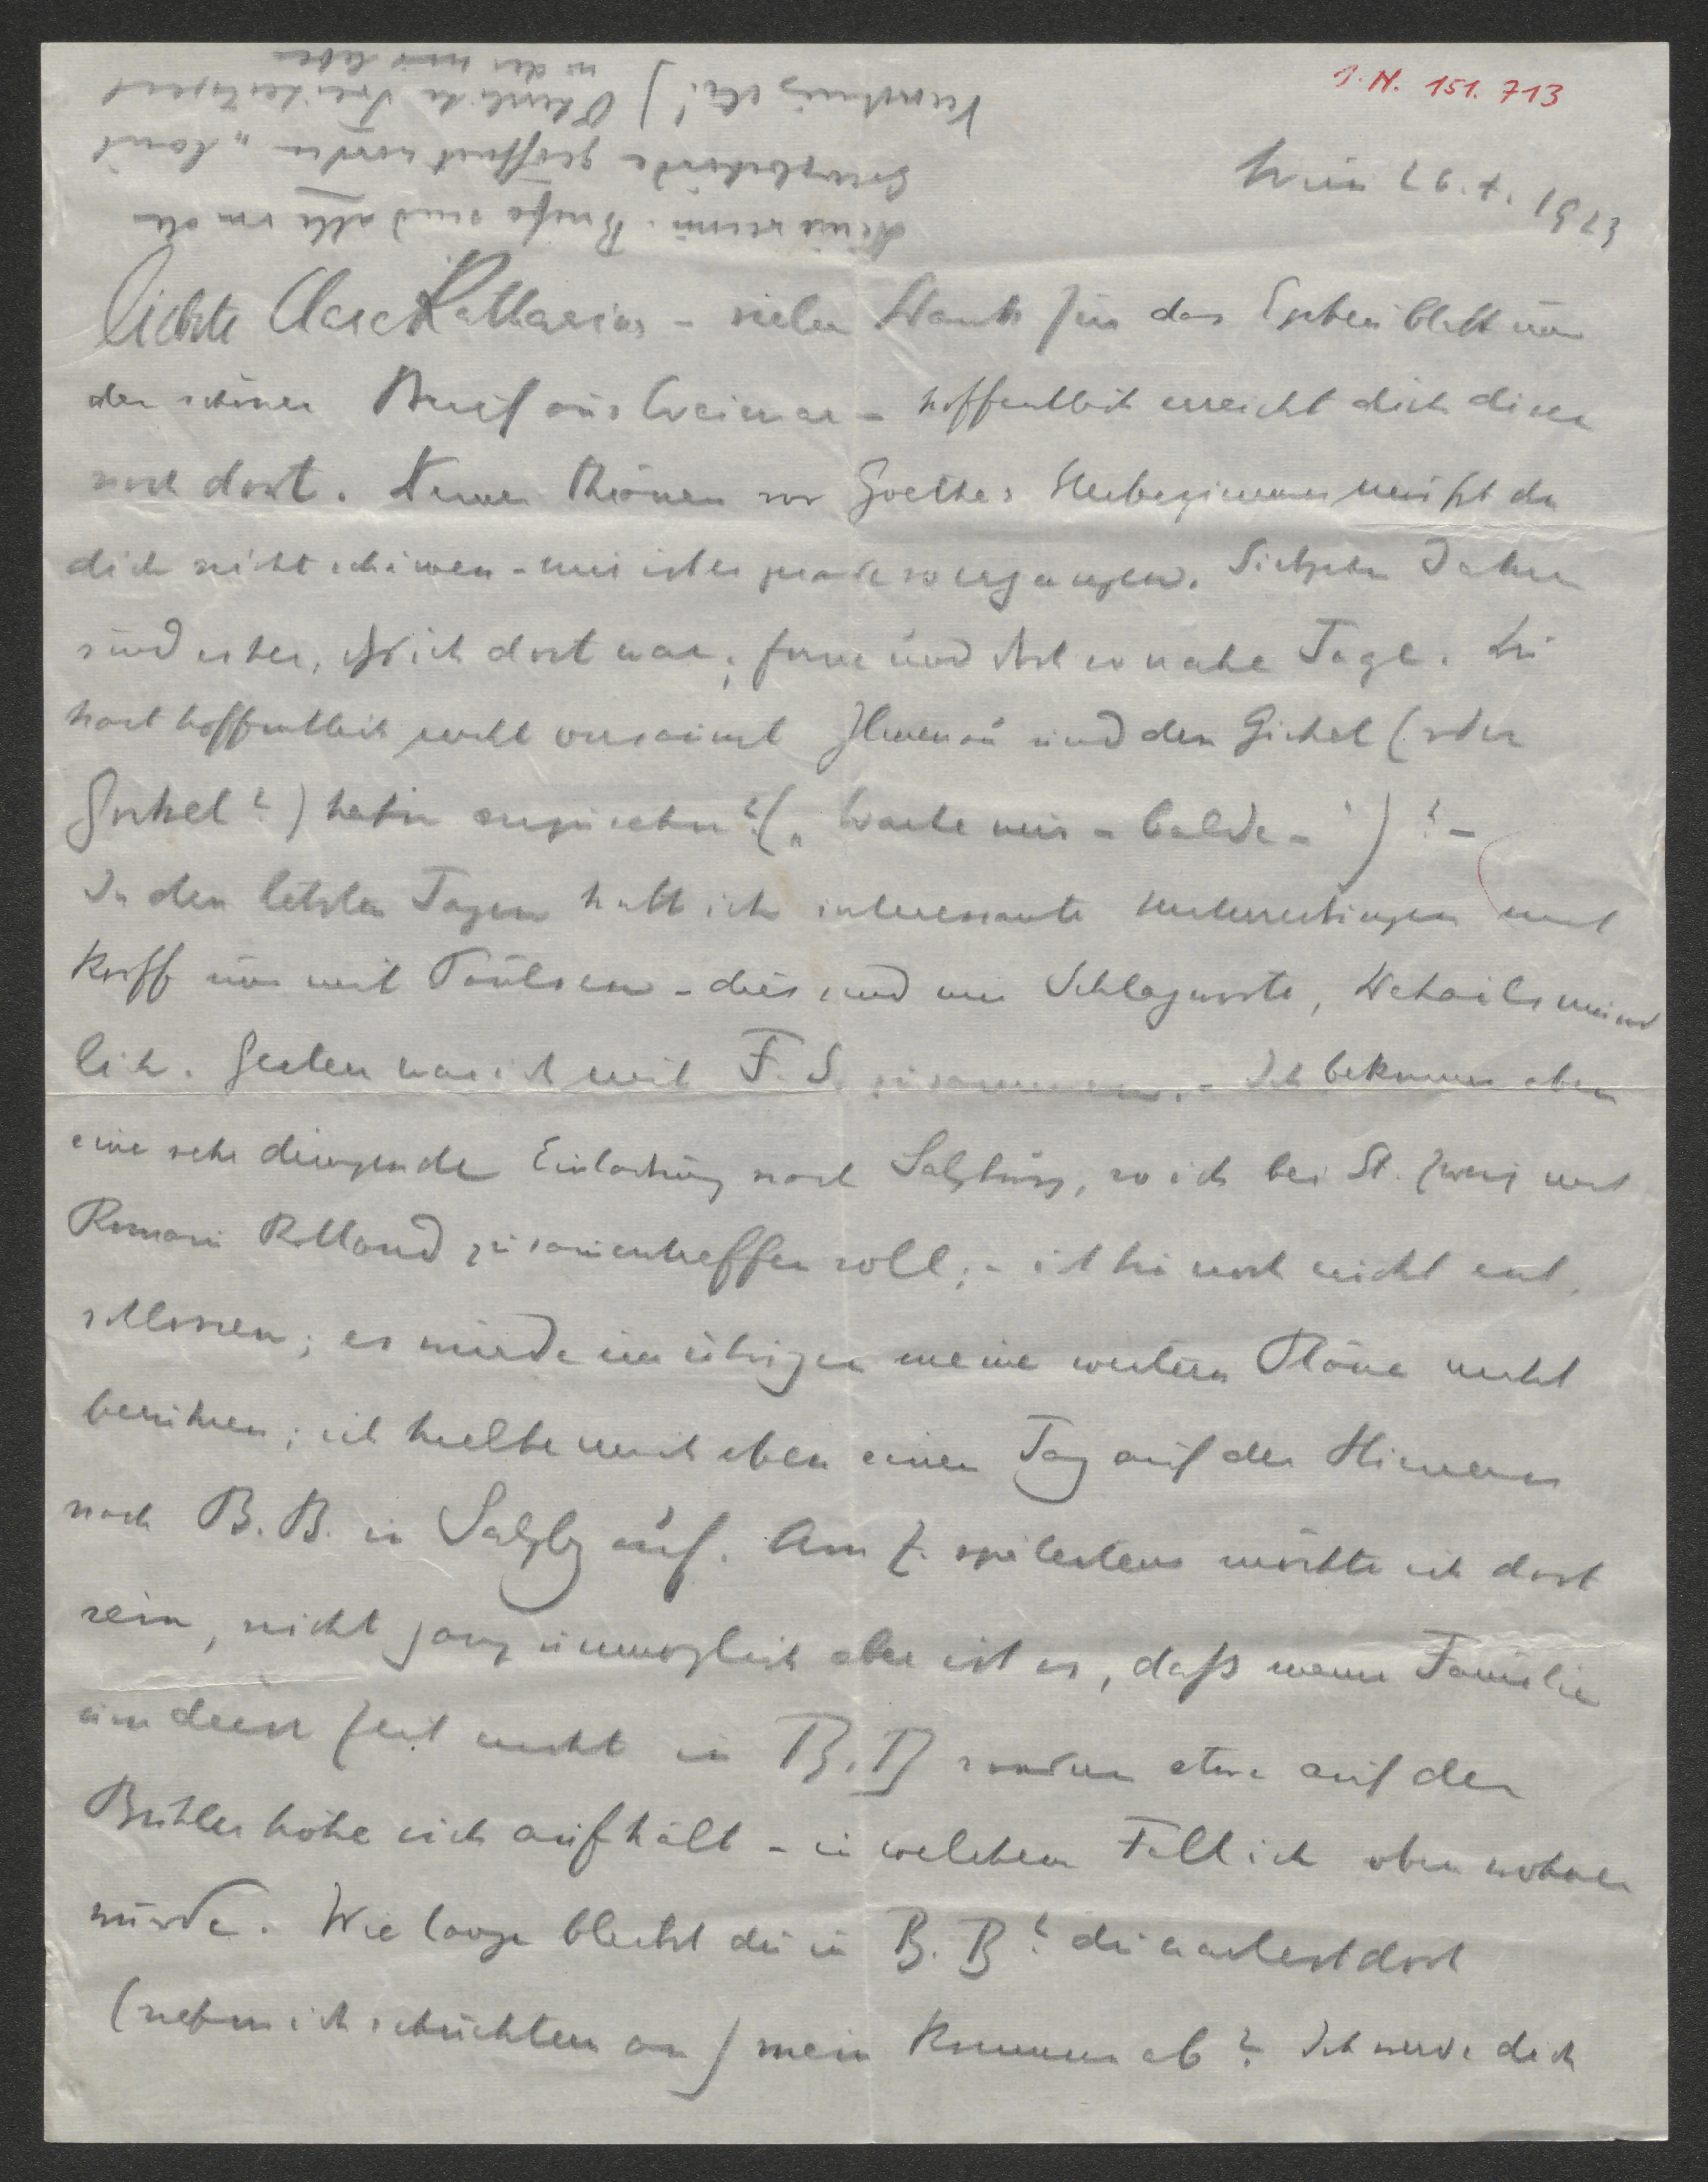 I. N. 151.713
Wien 26.7.1923
Liebste Clara Katharina – vielen Dank für das Epheublatt und
den schönen Brief aus Weimar – hoffentlich erreicht dich dieser
noch dort. Deiner Thränen vor Goethes Sterbezimmer mußt du
dich nicht schämen – mir ist es gerade so ergangen. Jahre
sind es her, daß ich dort war; ferne und doch so nahe Tage. Du
hast hoffentlich nicht versäumt Ilmenau und den Gickel (oder
Gickel?) hahn anzusehn? („Warte nur – balde –“)? –
In den letzten Tagen hatt ich interessante Unterredungen mit
Korff und mit Poulsen – dies sind nur Schlagworte, Details münd
lich. Gestern war ich mit F. S. zusammen. – Ich bekomme eben
eine sehr dringende Einladung nach Salzburg, wo ich bei St. Zweig mit
Romain Rolland zusammentreffen soll; – ich bin noch nicht ent
schlossen; es würde im übrigen meine weitern Pläne nicht
berühren; ich hielte mich eben einen Tag auf der Hinreise
nach B. B. in Salzbg auf. Am 7. spätestens möchte ich dort
sein, nicht ganz unmöglich aber ist es, daß meine Familie
um diese Zeit nicht in B. B. sondern etwa auf der
Bühlerhöhe sich aufhält – in welchem Fall ich oben wohnen
würde. Wie lange bleibst du in B. B.? du wartest dort
(nehm ich schüchtern an) mein Kommen ab? Ich werde dich
Deine Briefe sind alle von der
geöffnet worden „laut
Verordnung etc.“)
in der wir leben